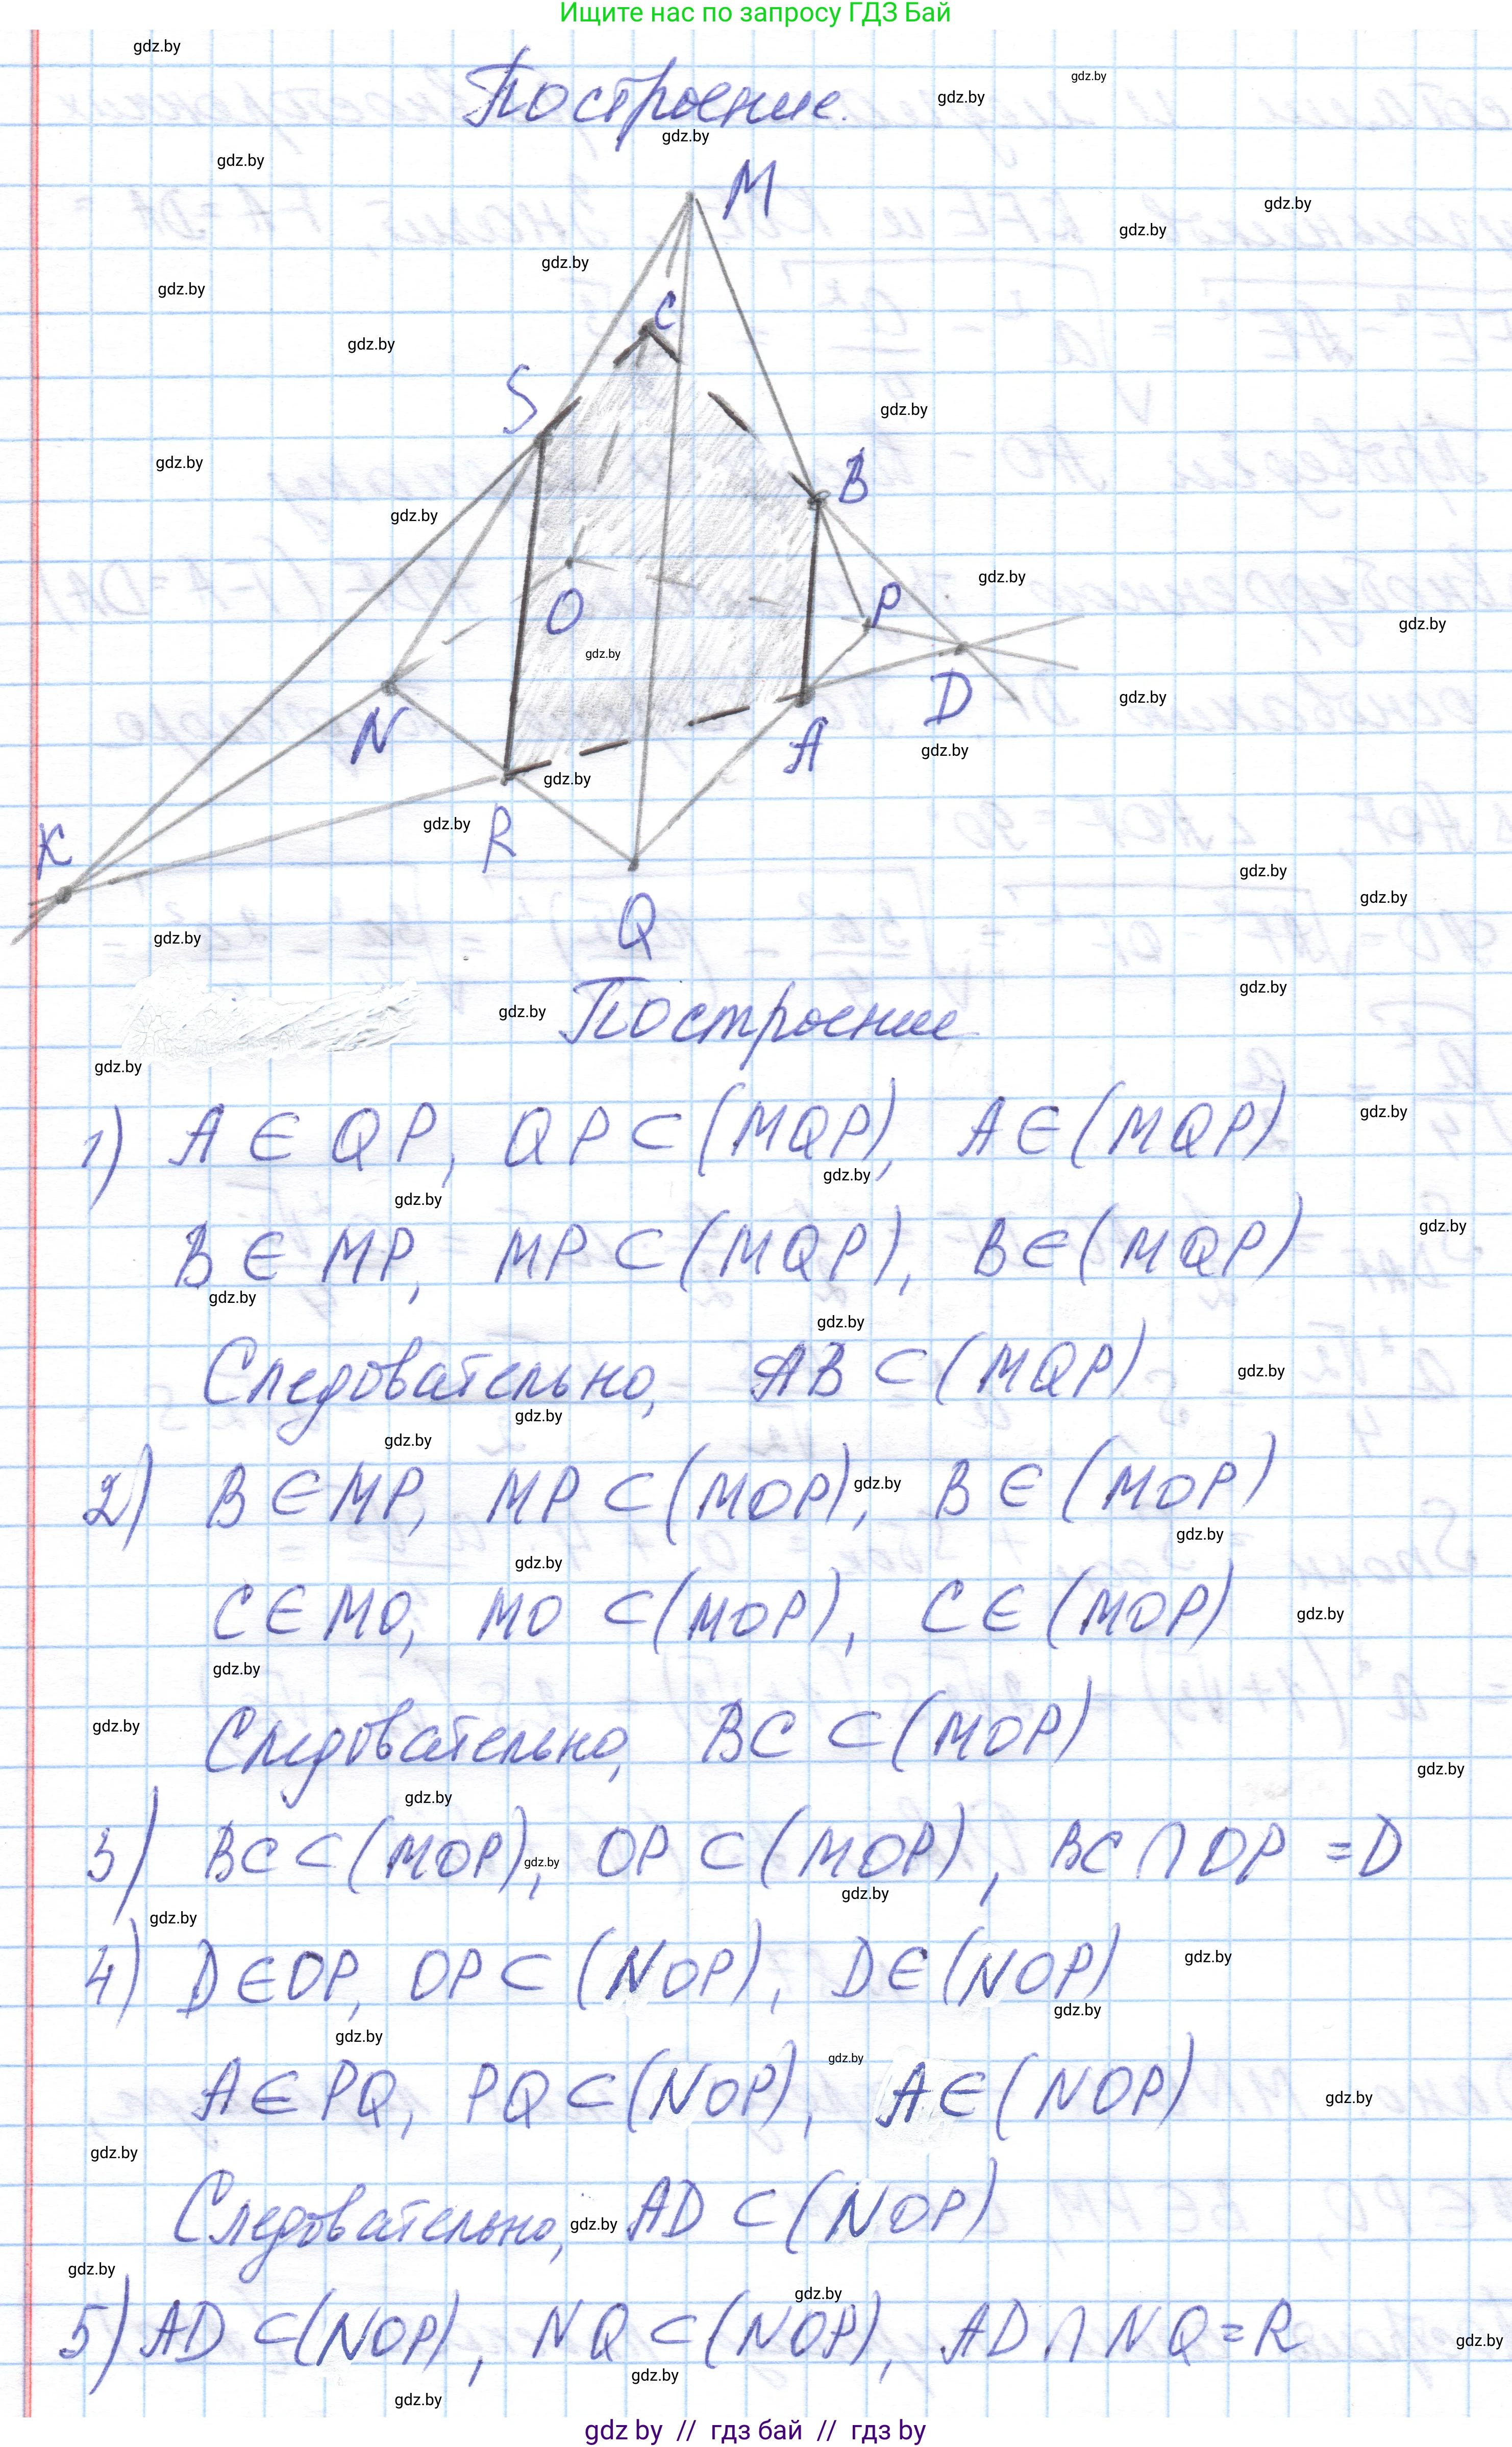 Ищите нас по запросу ГДЗ Бай
gdz.by
Построение.
M
C
S
B
O
P
N
D
A
K
R
Q
Построение
1) A ∈ QP, QP ⊂ (MQP), A ∈ (MQP)
B ∈ MP, MP ⊂ (MQP), B ∈ (MQP)
Следовательно, AB ⊂ (MQP)
2) B ∈ MP, MP ⊂ (MOP), B ∈ (MOP)
C ∈ MO, MO ⊂ (MOP), C ∈ (MOP)
Следовательно, BC ⊂ (MOP)
3) BC ⊂ (MOP), OP ⊂ (MOP), BC ∩ OP = D
4) D ∈ OP, OP ⊂ (NOP), D ∈ (NOP)
A ∈ PQ, PQ ⊂ (NOP), A ∈ (NOP)
Следовательно, AD ⊂ (NOP)
5) AD ⊂ (NOP), NQ ⊂ (NOP), AD ∩ NQ = R
gdz by // гдз бай // гдз by